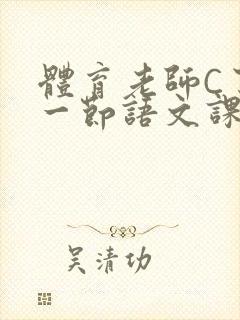 體育老師C
一節語文課
吴清功